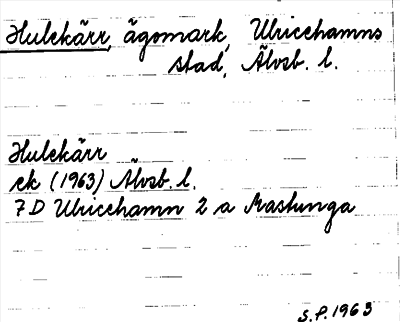 Hulekärr, ägomark, Ulricehamns
stad, Älvsb. l.
Hulekärr
ek (1963) Älvsb. l.
7 D Ulricehamn 2 a Mastunga
S.P. 1963